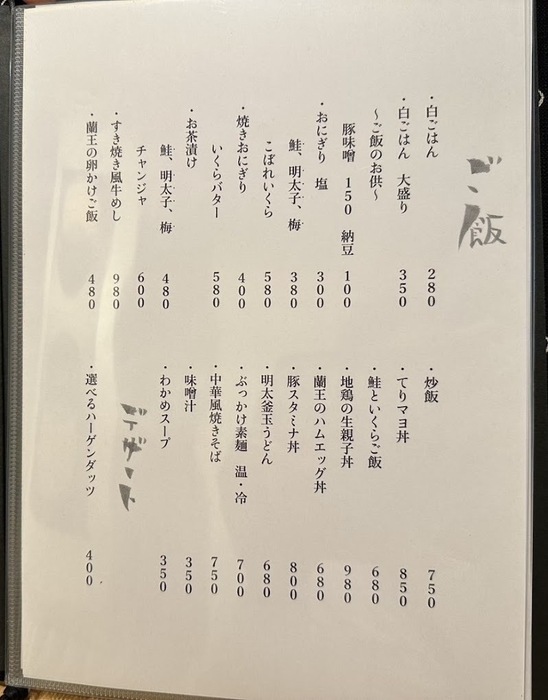 ご飯
・白ごはん 280
・白ごはん 大盛り 350
〜ご飯のお供〜
豚味噌 150 納豆 100
・おにぎり 塩 300
鮭、明太子、梅 380
こぼれいくら 580
・焼きおにぎり 400
いくらバター 580
・お茶漬け
鮭、明太子、梅 480
チャンジャ 600
・すき焼き風牛めし 980
・蘭王の卵かけご飯 480
・炒飯 750
・てりマヨ丼 850
・鮭といくらご飯 680
・地鶏の生親子丼 980
・蘭王のハムエッグ丼 680
・豚スタミナ丼 800
・明太釜玉うどん 680
・ぶっかけ素麺 温・冷 700
・中華風焼きそば 750
・味噌汁 350
・わかめスープ 350
デザート
・選べるハーゲンダッツ 400